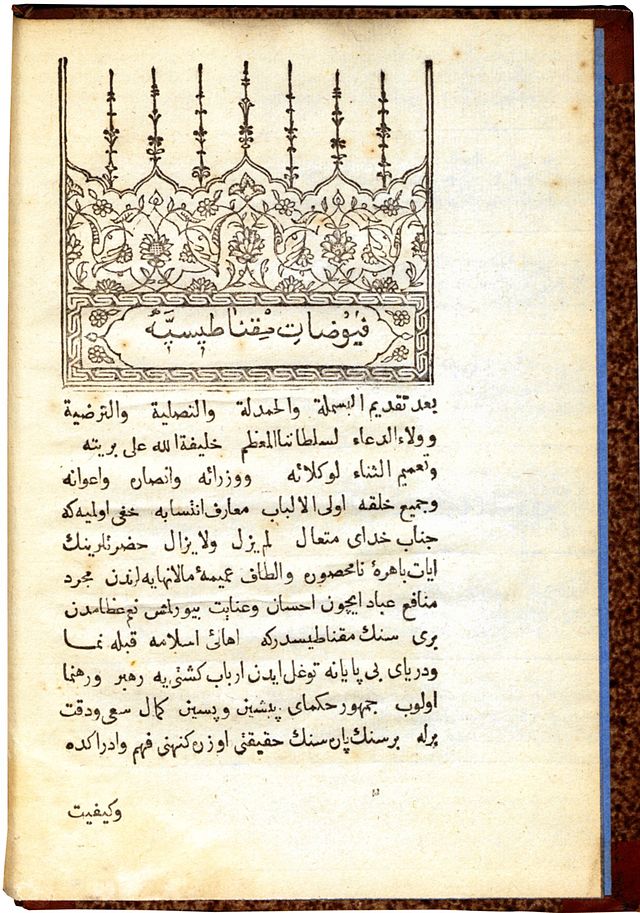 فيوضات مقناطيسيه
بعد تقديم البسملة والحمدلة والتصلية والترضية
وولاء الدعاء لسلطاننا المعظم خليفة الله على بريته
وتعميم الثناء لوكلائه ووزرائه وانصاره واعوانه
وجميع خلقه اولى الالباب معارف انتسابه خفى اوليه كه
جناب خداى متعال لم يزل ولا يزال حضرتلرينك
ايات باهرۀ نامحصور والطاف عميمۀ مالانهايه لرندن مجرد
منافع عباد ايچون احسان وعنايت بيورلمش نعم عظامدن
برى سنك مقناطيسدركه اهالئ اسلامه قبله نما
ودرياى بى پايانه توغل ايدن ارباب كشتى يه رهبر ورهنما
اولوب جمهور حكماى پيشين وپسين كمال سعى ودقت
برله برسنك پاره سنك حقيقتى اوزره كنهنى فهم وادراكده
وكيفيت